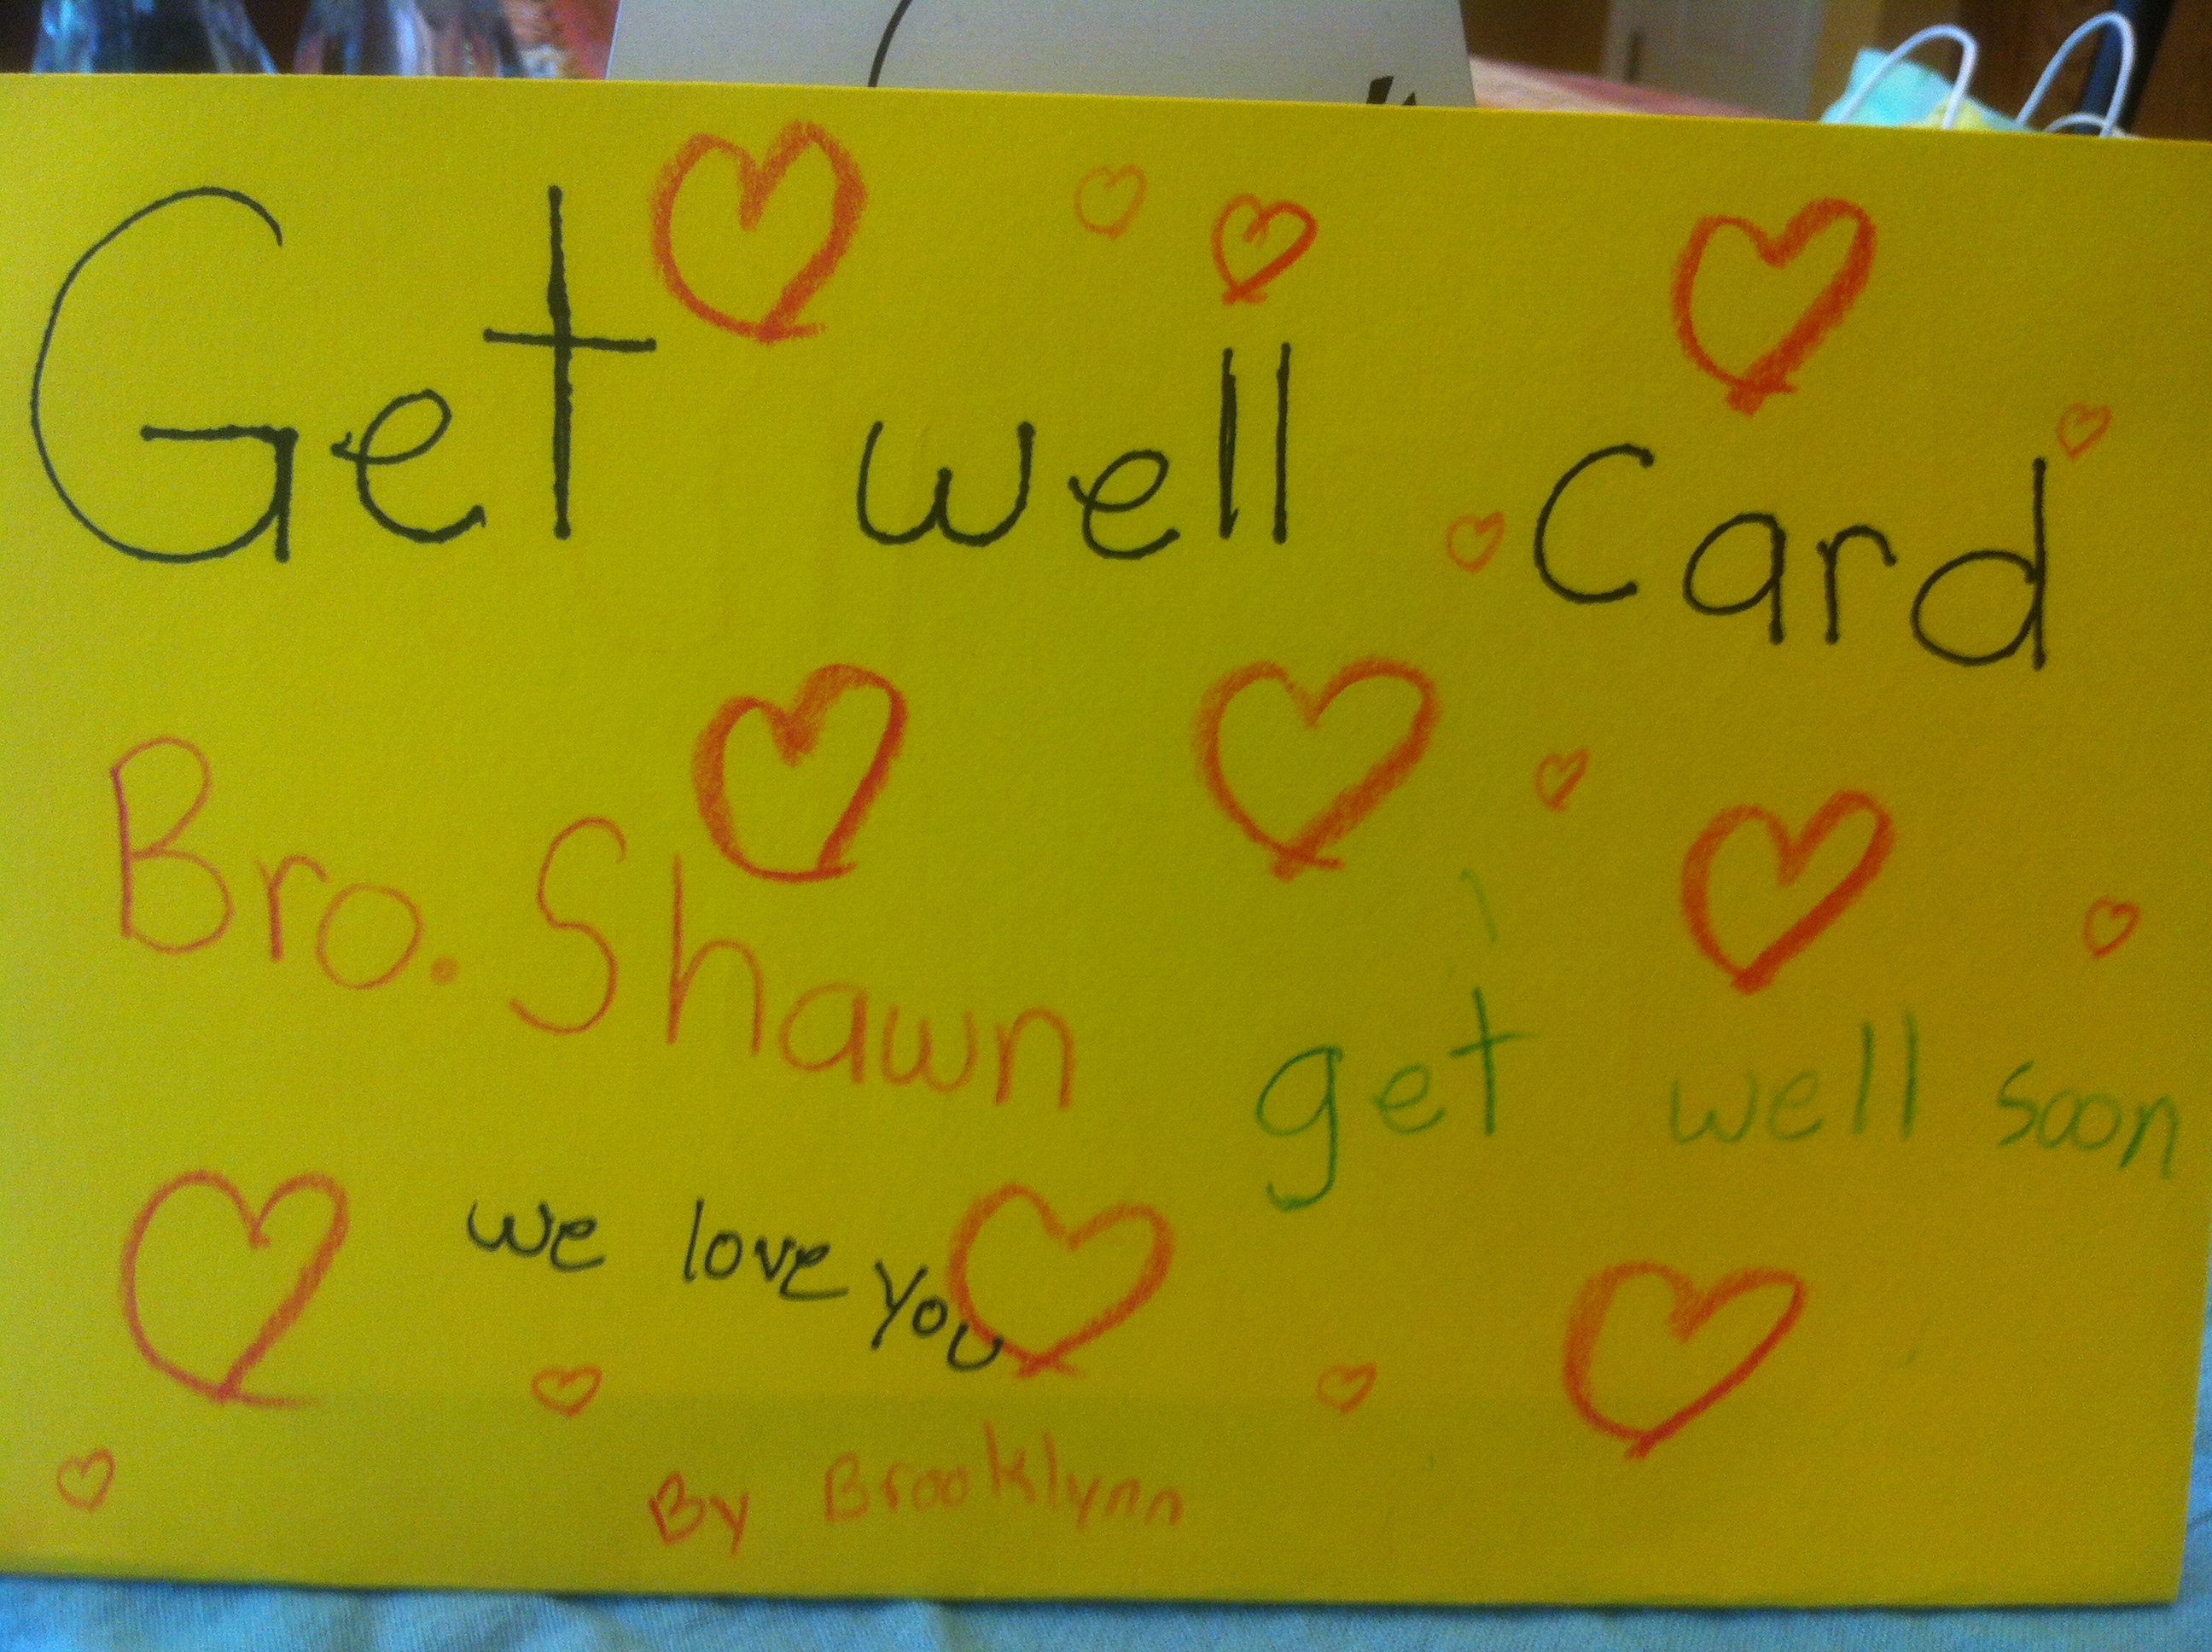 Get well Card
Bro. Shawn get well soon
we love you
By Brooklynn